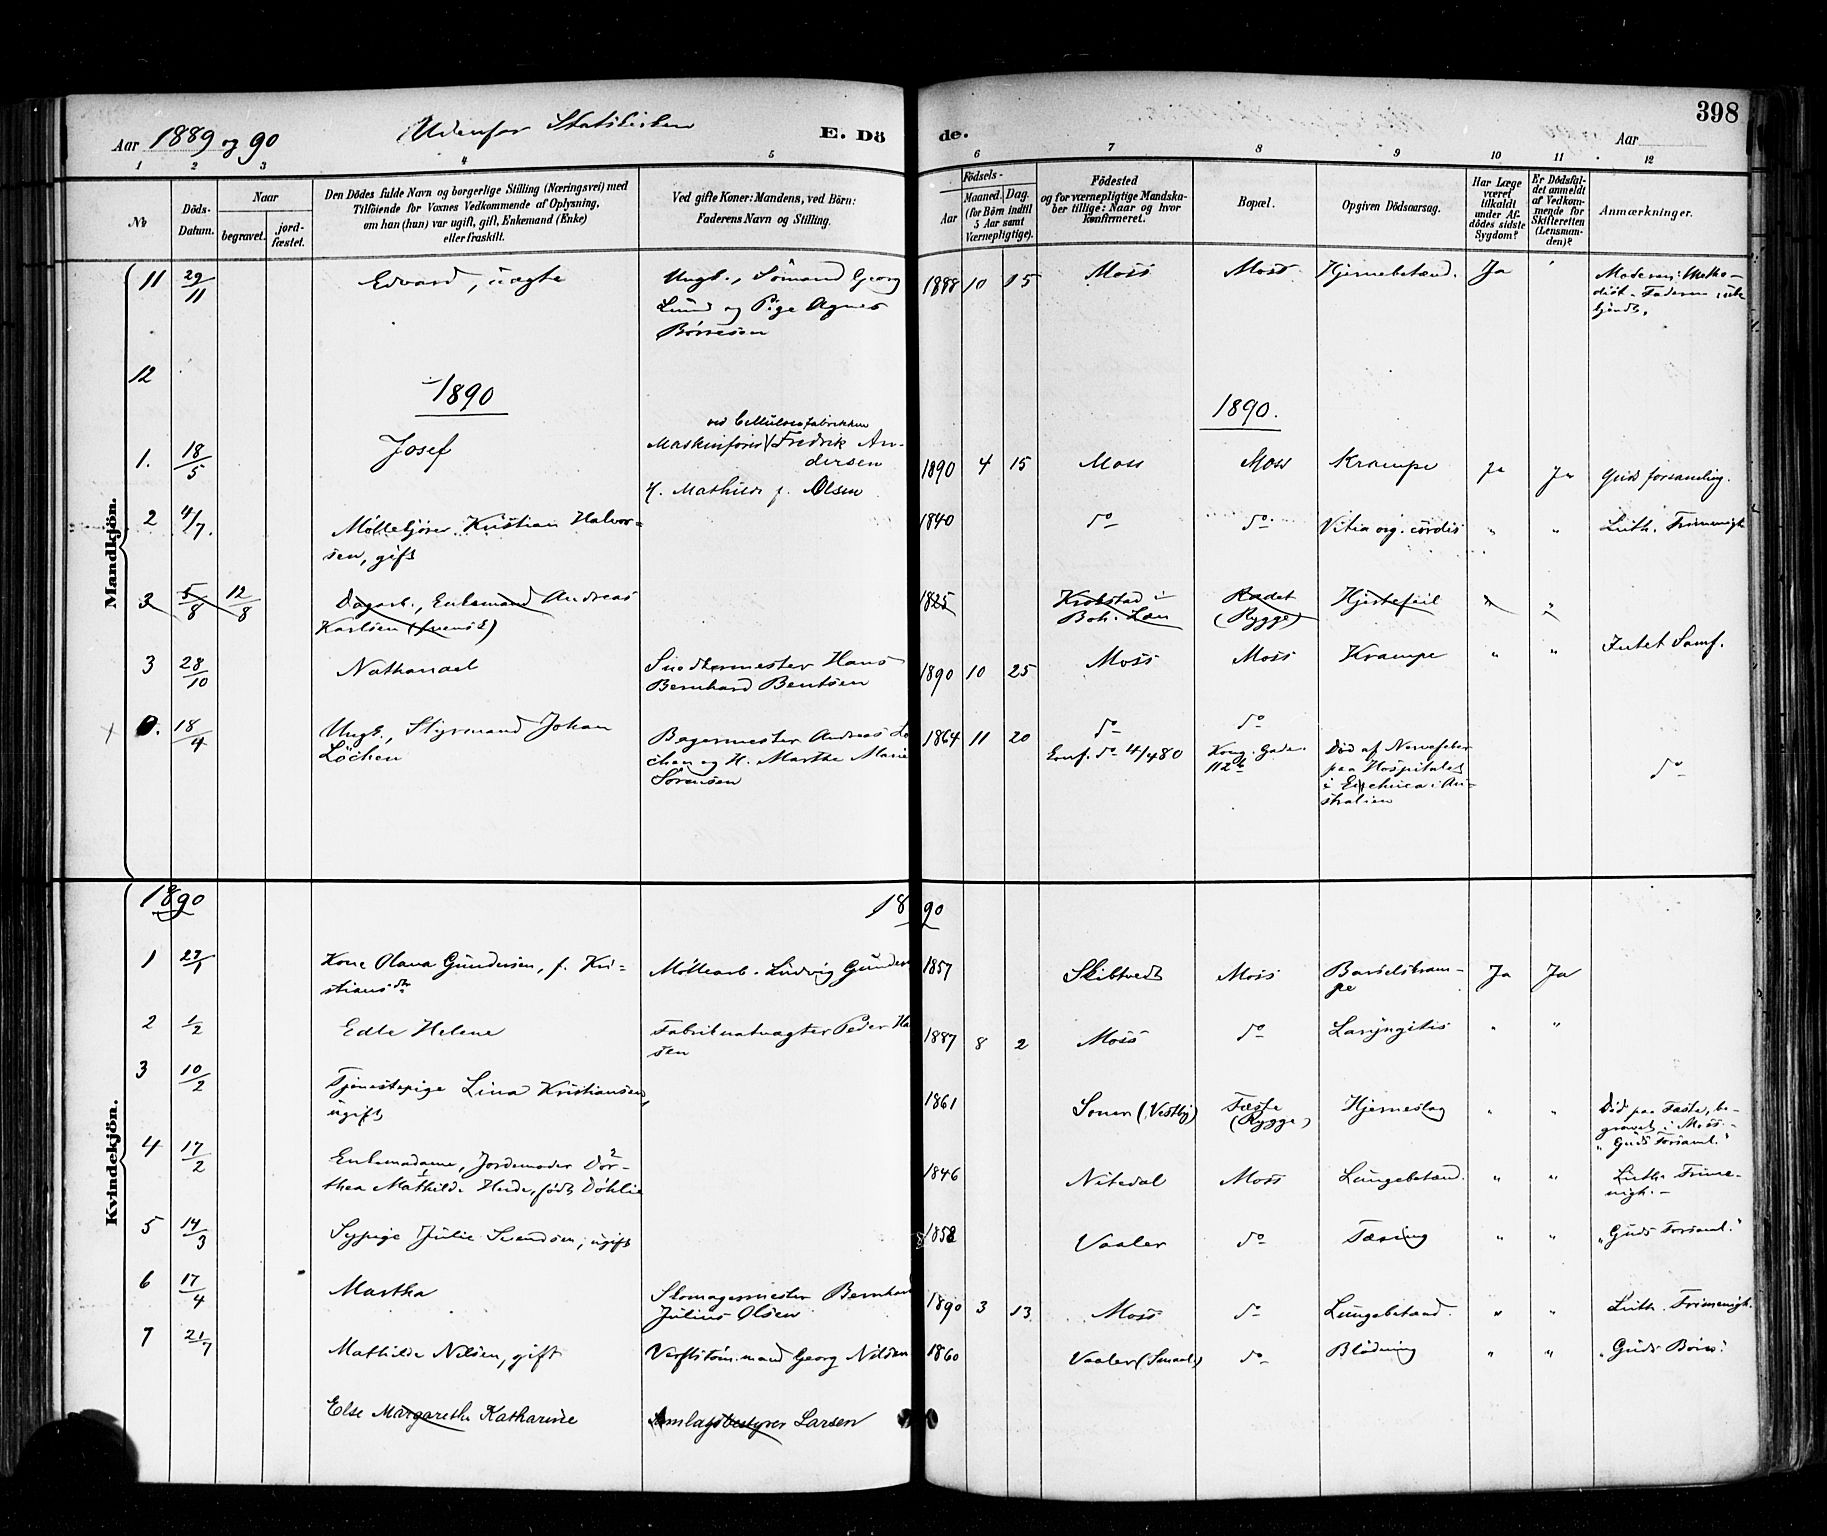 398
Aar 1889 og 90
Udenfor Statistiken
E. Dö
de.
Aar
1 2 3 4 5 6 7 8 9 10 11 12
No
Döds-Datum.
Naar
begravet.
jord-fæstet.
Den Dödes fulde Navn og borgerlige Stilling (Næringsvei) med
Tilföiende for Voxnes Vedkommende af Oplysning,
om han (hun) var ugift, gift, Enkemand (Enke)
eller fraskilt.
Ved gifte Koner: Mandens, ved Börn:
Faderens Navn og Stilling.
Födsels-
Aar
Maaned. Dag.
(for Börn indtil
5 Aar samt
Værnepligtige).
Födested
og for værnepligtige Mandska-
ber tillige: Naar og hvor
konfirmeret.
Bopæl.
Opgiven Dödsaarsag.
Har Læge
været
tilkaldt
under Af-
dödes sidste
Sygdom?
Er Dödsfal-
det anmeldt
af Vedkom-
mende for
Skifteretten
(Lensman-
den)?
Anmærkninger.
Mandkjön.
11 29/11 Edvard, uægte
Ungk., Sömand Georg
Lund og Pige Agnes
Börresen
1888 10 15 Moss Moss Hjernebetænd. Ja
Moderen: Metho-
dist. Faderen ube
kjendt.
12
1890
1890.
1. 18/5 Josef
ved Cellulosefabrikken
Maskinförer Fredrik An-
dersen
H. Mathilde f. Olsen
1890 4 15 Moss Moss Krampe Ja Ja Guds forsamling.
2 4/7. Möllekjörer Kristian Halvor-
sen, gift
1840 do do Vitia org. cordis " " Luth. Frimenigh
3 5/8 12/8 Dagarb., Enkemand Andreas
Karlsen (svensk)
1825 Krokstad i
Boh. Län
Rædet
(Rygge)
Hjertefeil " "
3 28/10 Nathanael
Snedkermester Hans
Bernhard Bentsen
1890 10 25 Moss Moss Krampe " " Intet Samf.
0. 18/4 Ungk., Styrmand Johan
Löchen
Bagermester Andreas Lö
chen og H. Marthe Marie
Sörensen
1864 11 20 do
Conf. do 4/4 80
do
Kong. Gade
112 b
Död af Nervefeber
paa Hospitalet
i Echuca i Au-
stralien
do
Kvindekjön.
1890
1890
1 27/1 Kone Olana Gundersen, f. Kri-
stiansdtr
Möllearb. Ludvig Gunders
1857 Skibtvedt Moss Barselskram-
pe
Ja Ja
2 1/2 Edle Helene
Fabriknatvagter Peder Ha
sen
1887 8 2 Moss do Laryngitis " "
3 10/2 Tjenestepige Lina Kristiansen,
ugift
1861 Sonen (Vestby) Fæste
(Rygge)
Hjerneslag " "
Död paa Fæste, be-
gravet i Moss.
"Guds Forsaml."
4 17/2 Enkemadame, Jordemoder Dor-
thea Mathilde Heide, födt Döhlie
1846 Nitedal Moss Lungebetænd. " "
Luth. Frime-
nigh.
5 14/3 Sypige Julie Svendsen, ugift
1858 Vaaler do Tæring " " "Guds Forsaml."
6 17/4 Martha
Skomagermester Bernhard
Julius Olsen
1890 3 13 Moss do Lungebetænd. " " Luth. Frimenigh.
7 21/7 Mathilde Nilsen, gift
Verftstöm.mand Georg Nilsen
1860 Vaaler (Smaal.) do Blödning " " "Guds Börn"
Else Margarethe Katharine
Amlagsbestyrer Larsen